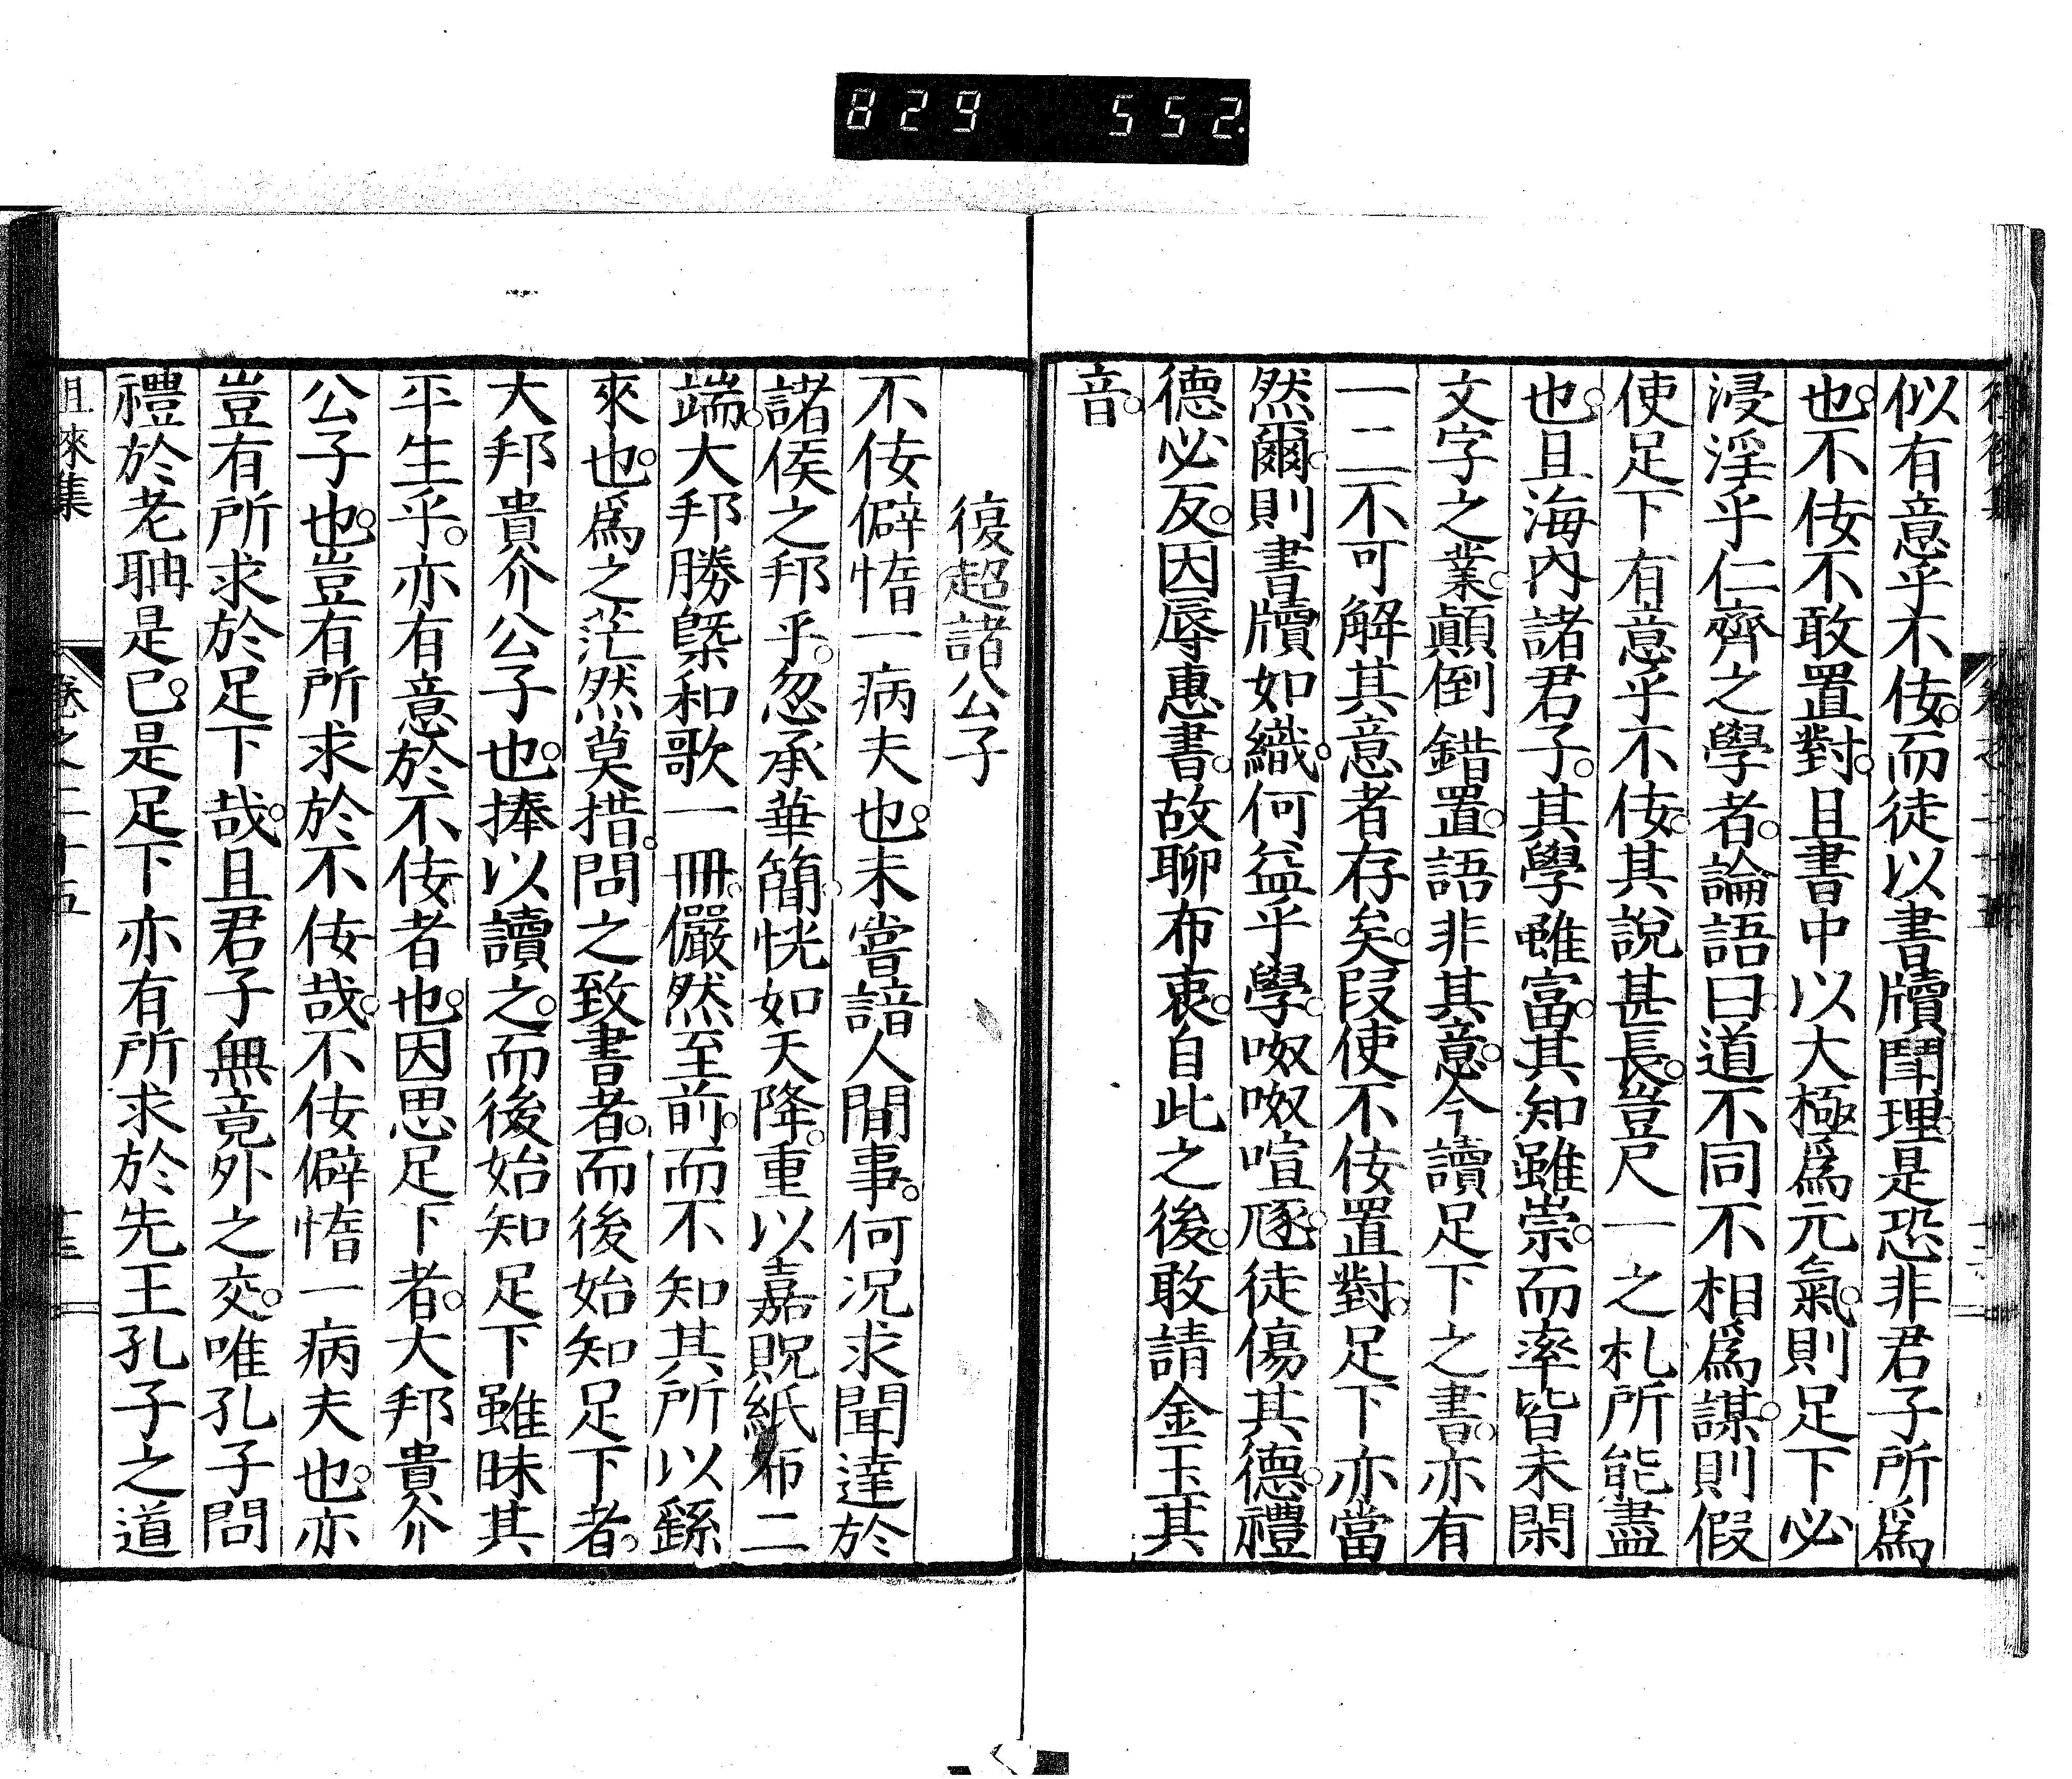 829 552
似有意乎不佞。而徒以書牘鬪理。是恐非君子所爲
也。不佞不敢置對。且書中以大極爲元氣。則足下必
浸淫乎仁齊之學者。論語曰。道不同不相爲謀。則假
使足下有意乎不佞。其說甚長。豈尺一之札所能盡
也。且海內諸君子。其學雖富。其知雖崇。而率皆未閑
文字之業。顚倒錯置。語非其意。今讀足下之書。亦有
一二不可解其意者存矣。叚使不佞置對。足下亦當
然爾。則書牘如織。何益乎學。呶呶喧豗。徒傷其德。禮
德必反。因辱惠書。故聊布衷。自此之後。敢請金玉其
音。
復超諸公子
不佞僻惰一病夫也。未嘗諳人間事。何况求聞達於
諸侯之邦乎。忽承華簡。恍如天降。重以嘉貺紙布二
端。大邦勝槩和歌一冊。儼然至前。而不知其所以繇
來也。爲之茫然莫措。問之致書者。而後始知足下者。
大邦貴介公子也。捧以讀之。而後始知足下雖昧其
平生乎。亦有意於不佞者也。因思足下者。大邦貴介
公子也。豈有所求於不佞哉。不佞僻惰一病夫也。亦
豈有所求於足下哉。且君子無竟外之交。唯孔子問
禮於老聃是已。是足下亦有所求於先王孔子之道
徂徠集 卷之二十五 十三